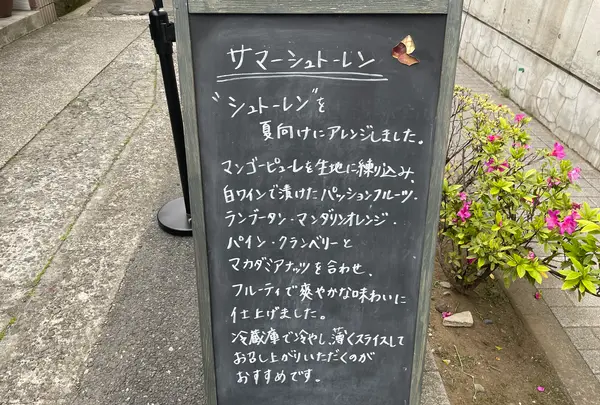 サマーシュトーレン
"シュトーレン"を
夏向けにアレンジしました。
マンゴーピューレを生地に練り込み、
白ワインで漬けたパッションフルーツ・
ランブータン・マンダリンオレンジ・
パイン・クランベリーと
マカダミアナッツを合わせ、
フルーティで爽やかな味わいに
仕上げました。
冷蔵庫で冷やし、薄くスライスして
お召し上がりいただくのが
おすすめです。